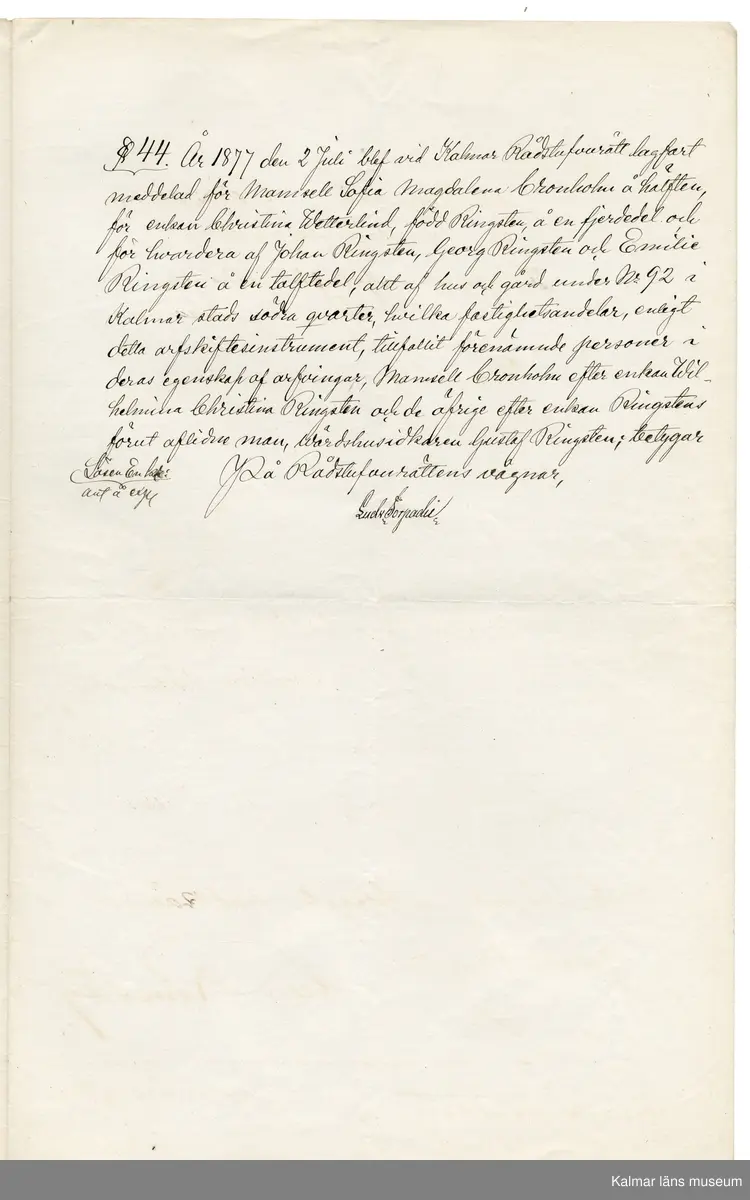 § 44. År 1877 den 2 Juli blef vid Kalmar Rådstufvurätt lagfart
meddelad för Mamsell Sofia Magdalena Cronholm å hälften,
för enkan Christina Wetterlind, född Ringsten, å en fjerdedel och
för hvardera af Johan Ringsten, Georg Ringsten och Emilie
Ringsten å en tolftedel, allt af hus och gård under No 92 i
Kalmar stads södra qvarter, hvilka fastighetsandelar, enligt
detta arfskiftesinstrument, tillfallit förenämnde personer i
deras egenskap af arfvingar, Mamsell Cronholm efter enkan Wil-
helmina Christina Ringsten och de öfrige efter enkan Ringstens
förut aflidne man, wärdshusidkaren Gustaf Ringsten; betygar
På Rådstufvurättens vägnar,
Lösen En
ant å
Kalmar läns museum